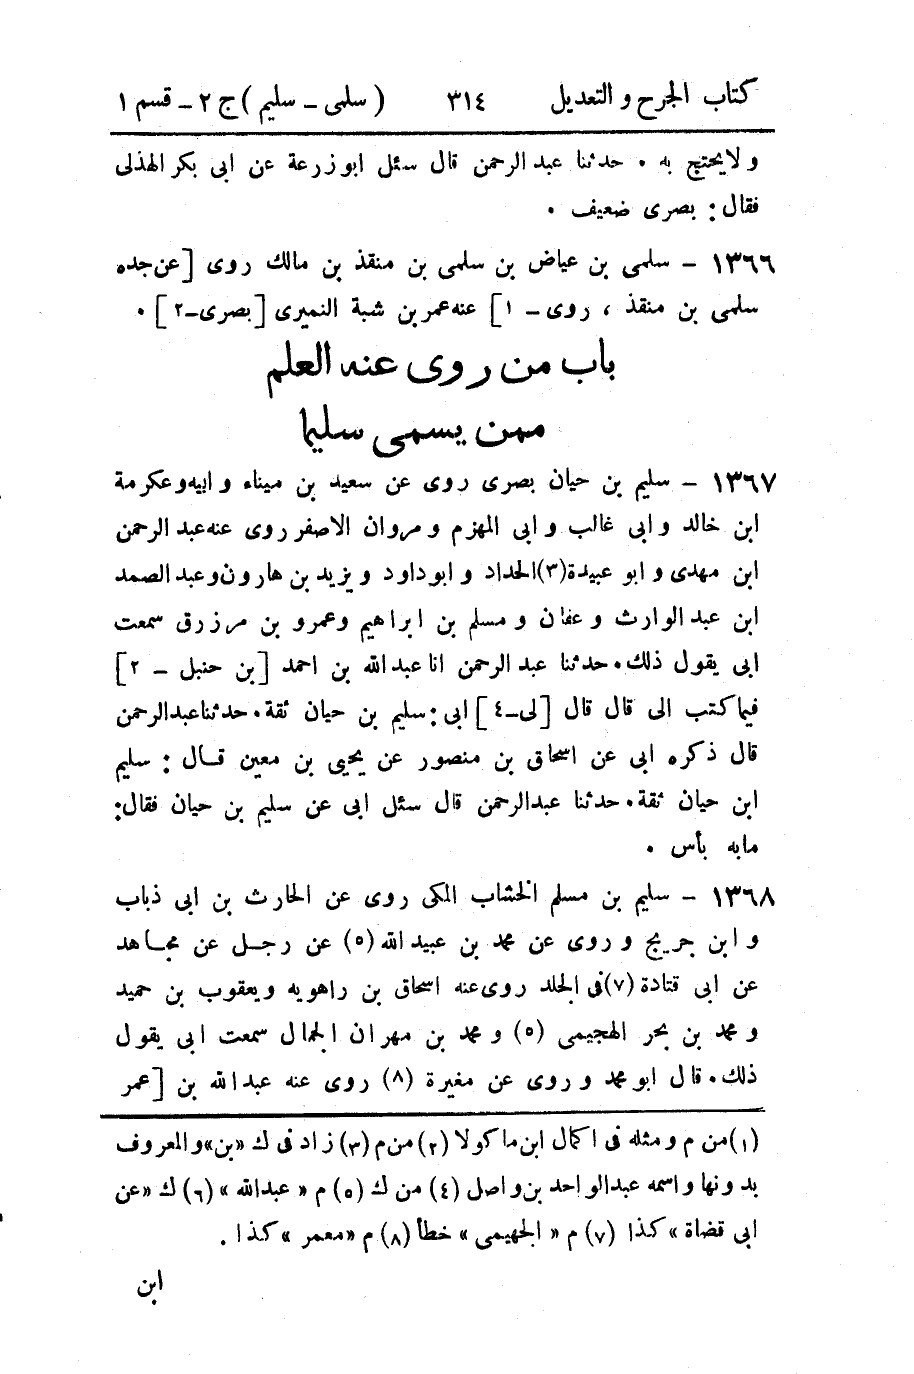 كتاب الجرح والتعديل ٣١٤ (سلمى - سليم) ج ٢ - قسم ١
ولا يحتج به . حدثنا عبد الرحمن قال سئل ابو زرعة عن ابى بكر الهذلى
فقال : بصرى ضعيف .
١٣٦٦ - سلمى بن عياض بن سلمى بن منقذ بن مالك روى [عن جده
سلمى بن منقذ ، روى - ١] عنه عمر بن شبة النميرى [بصرى - ٢] .
باب من روى عنه العلم
ممن يسمى سليما
١٣٦٧ - سليم بن حيان بصرى روى عن سعيد بن ميناء وابيه وعكرمة
ابن خالد وابى غالب وابى المهزم ومروان الاصفر روى عنه عبد الرحمن
ابن مهدى وابو عبيدة (٣) الحداد وابو داود ويزيد بن هارون وعبد الصمد
ابن عبد الوارث وعفان ومسلم بن ابراهيم وعمرو بن مرزوق سمعت
ابى يقول ذلك . حدثنا عبد الرحمن انا عبد الله بن احمد [بن حنبل - ٢]
فيما كتب الى قال قال [لى - ٤] ابى : سليم بن حيان ثقة . حدثنا عبد الرحمن
قال ذكره ابى عن اسحاق بن منصور عن يحيى بن معين قال : سليم
ابن حيان ثقة . حدثنا عبد الرحمن قال سئل ابى عن سليم بن حيان فقال :
ما به بأس .
١٣٦٨ - سليم بن مسلم الخشاب المكى روى عن الحارث بن ابى ذباب
وابن جريج وروى عن محمد بن عبيد الله (٥) عن رجل عن مجاهد
عن ابى قتادة (٧) فى الجلد روى عنه اسحاق بن راهويه ويعقوب بن حميد
ومحمد بن بحر الهجيمى (٥) ومحمد بن مهران الجمال سمعت ابى يقول
ذلك . قال ابو محمد وروى عن مغيرة (٨) روى عنه عبد الله بن [عمر
(١) من م ومثله فى اكمال ابن ماكولا (٢) من م (٣) زاد فى ك «بن» والمعروف
بدونها واسمه عبد الواحد بن واصل (٤) من ك (٥) م «عبد الله» (٦) ك «عن
ابى قضاة» كذا (٧) م «الجهيمى» خطأ (٨) م «معمر» كذا .
ابن